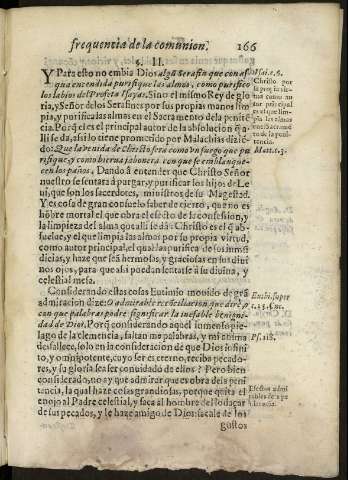 frequencia de la comunion. 166
§. II.
Y Para esto no embia Dios algũ Serafin que con as-
qua encendida purifique las almas, como purifico
los labios del Profeta Isayas. Sino el mismo Rey de glo
ria, y Señor de los Serafines por sus propias manos lim
pia, y purifica las almas en el Sacramento de la penitẽ
cia. Porq̃ el es el principal autor de la absolucion q̃ a-
lli se da, assi lo tiene prometido por Malachias dizié-
do: Que la venida de Christo sera como vn fuego que pu
rifique, y como hierua jabonera con que se emblanque-
cen los paños. Dando à entender que Christo Señor
nuestro se sentarà à purgar, y purificar los hijos de Le
ui, que son los sacerdotes, ministros de su Magestad.
Y es cosa de gran consuelo saber de cierto, que no es
hõbre mortal el que obra el efecto de la confession, y
la limpieza del alma q̃ ta alli se dà: Christo es el q̃ ab-
suelue, y el que limpia las almas por su propia virtud,
como autor principal, el qual las purifica de los inmũ
dicias, y haze que seã hermosas, y graciosas en sus diui
nos ojos, para que assi puedan sentarse à su diuina, y
celestial mesa.
Considerando estas cosas Eutimio mouido de grã
admiracion dize: O admirable reconciliacion, que dirè, o
con que palabras podre significar la inefable benigni-
dad de Dios. Porq̃ considerando aquel inmenso pie-
lago de la clemencia, faltan me palabras, y mi anima
desfallece, solo en la consideracion de que Dios infini-
to, y omnipotente, cuyo ser es eterno, reciba pecado-
res, y su gloria sea ser conuidado de ellos? Pero bien
considerado, no ay que admirar que es obra de la peni
tencia, la qual haze cosas grandiosas, porque quita el
enojo al Padre celestial, y saca al hombre del lodaçar
de sus pecados, y le haze amigo de Dios: sacale de los
gustos
Isai. c. 6.
Christo por
Matt. c. 3.
Ps. 118.
Efectos admi
rables de la pe
nitencia.